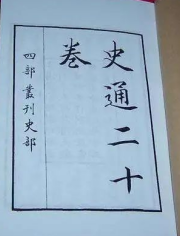 史通二十
卷
四部叢刊史部